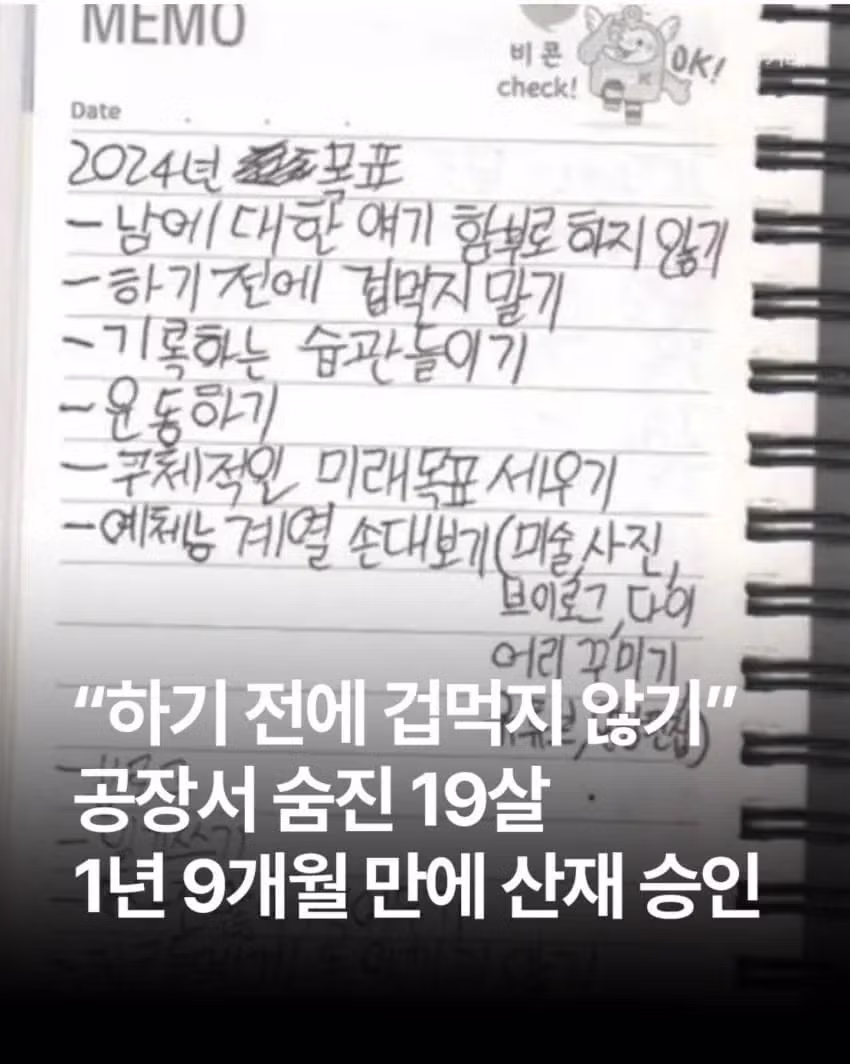 MEMO
비콘
check!
OK!
K
Date
2024년 목표
- 남에 대한 얘기 함부로 하지 않기
- 하기 전에 겁먹지 말기
- 기록하는 습관들이기
- 운동하기
- 구체적인 미래목표 세우기
- 예체능 계열 손대보기(미술,사진,
브이로그,다이
어리 꾸미기
“하기 전에 겁먹지 않기”
공장서 숨진 19살
1년 9개월 만에 산재 승인